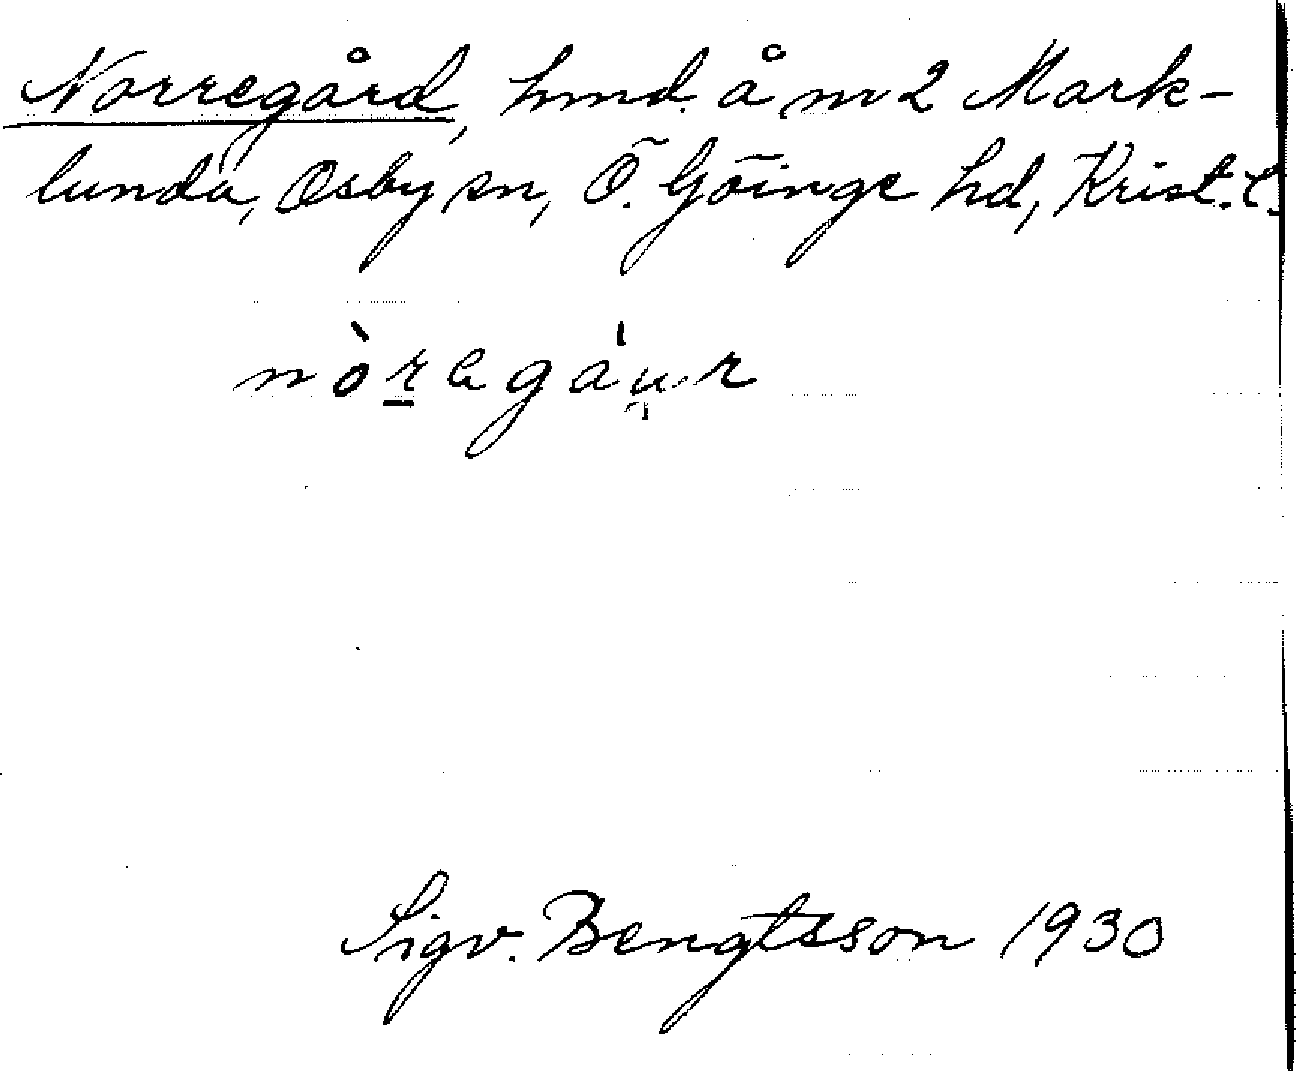 Norregård, hmd. å nr 2 Mark-
lunda, Osby sn, Ö. Göinge hd, Krist. l.
nòregáu̯r
Sigv. Bengtsson 1930